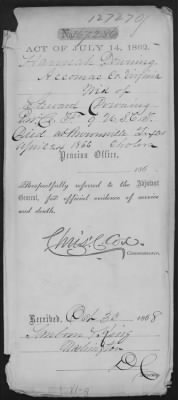 127279
No 167286
ACT OF JULY 14, 1862.
Hannah Downing,
Accomac Co Virginia
Wid of
Edward Downing
9 U.S.C.T.
Died at Brownsville Texas
April 24 1866 Cholera
Pension Office,
186
Respectfully referred to the Adjutant
General, for official evidence of service
and death.
Chris. C. Cox
Commissioner.
Received, Oct 23 1868
Washington
D C